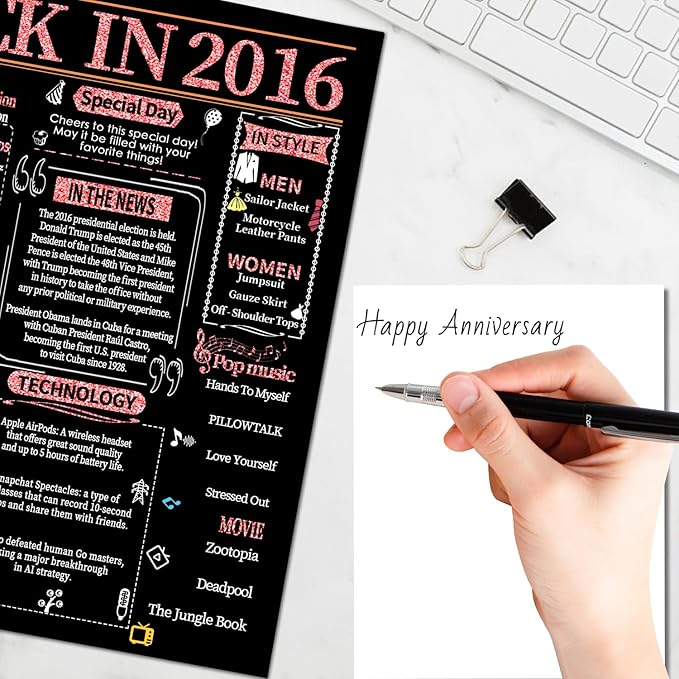 CK IN 2016
Special Day
Cheers to this special day!
May it be filled with your
favorite things!
IN THE NEWS
The 2016 presidential election is held.
Donald Trump is elected as the 45th
President of the United States and Mike
Pence is elected the 48th Vice President,
with Trump becoming the first president
in history to take the office without
any prior political or military experience.
President Obama lands in Cuba for a meeting
with Cuban President Raúl Castro,
becoming the first U.S. president
to visit Cuba since 1928.
TECHNOLOGY
Apple AirPods: A wireless headset
that offers great sound quality
and up to 5 hours of battery life.
napchat Spectacles: a type of
lasses that can record 10-second
os and share them with friends.
o defeated human Go masters,
king a major breakthrough
in AI strategy.
IN STYLE
MEN
Sailor Jacket
Motorcycle
Leather Pants
WOMEN
Jumpsuit
Gauze Skirt
Off-Shoulder Tops
Pop music
Hands To Myself
PILLOWTALK
Love Yourself
Stressed Out
MOVIE
Zootopia
Deadpool
The Jungle Book
Happy Anniversary